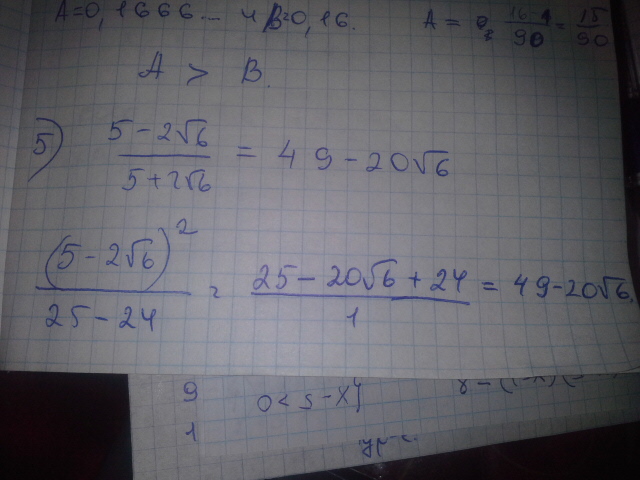 A = 0,1666... и B = 0,16. A = 0, 16-1/90 = 15/90
A > B.
5) (5 - 2√6)/(5 + 2√6) = 49 - 20√6
(5 - 2√6)²/(25 - 24) = (25 - 20√6 + 24)/1 = 49 - 20√6.
9 0 < 5 - x
1